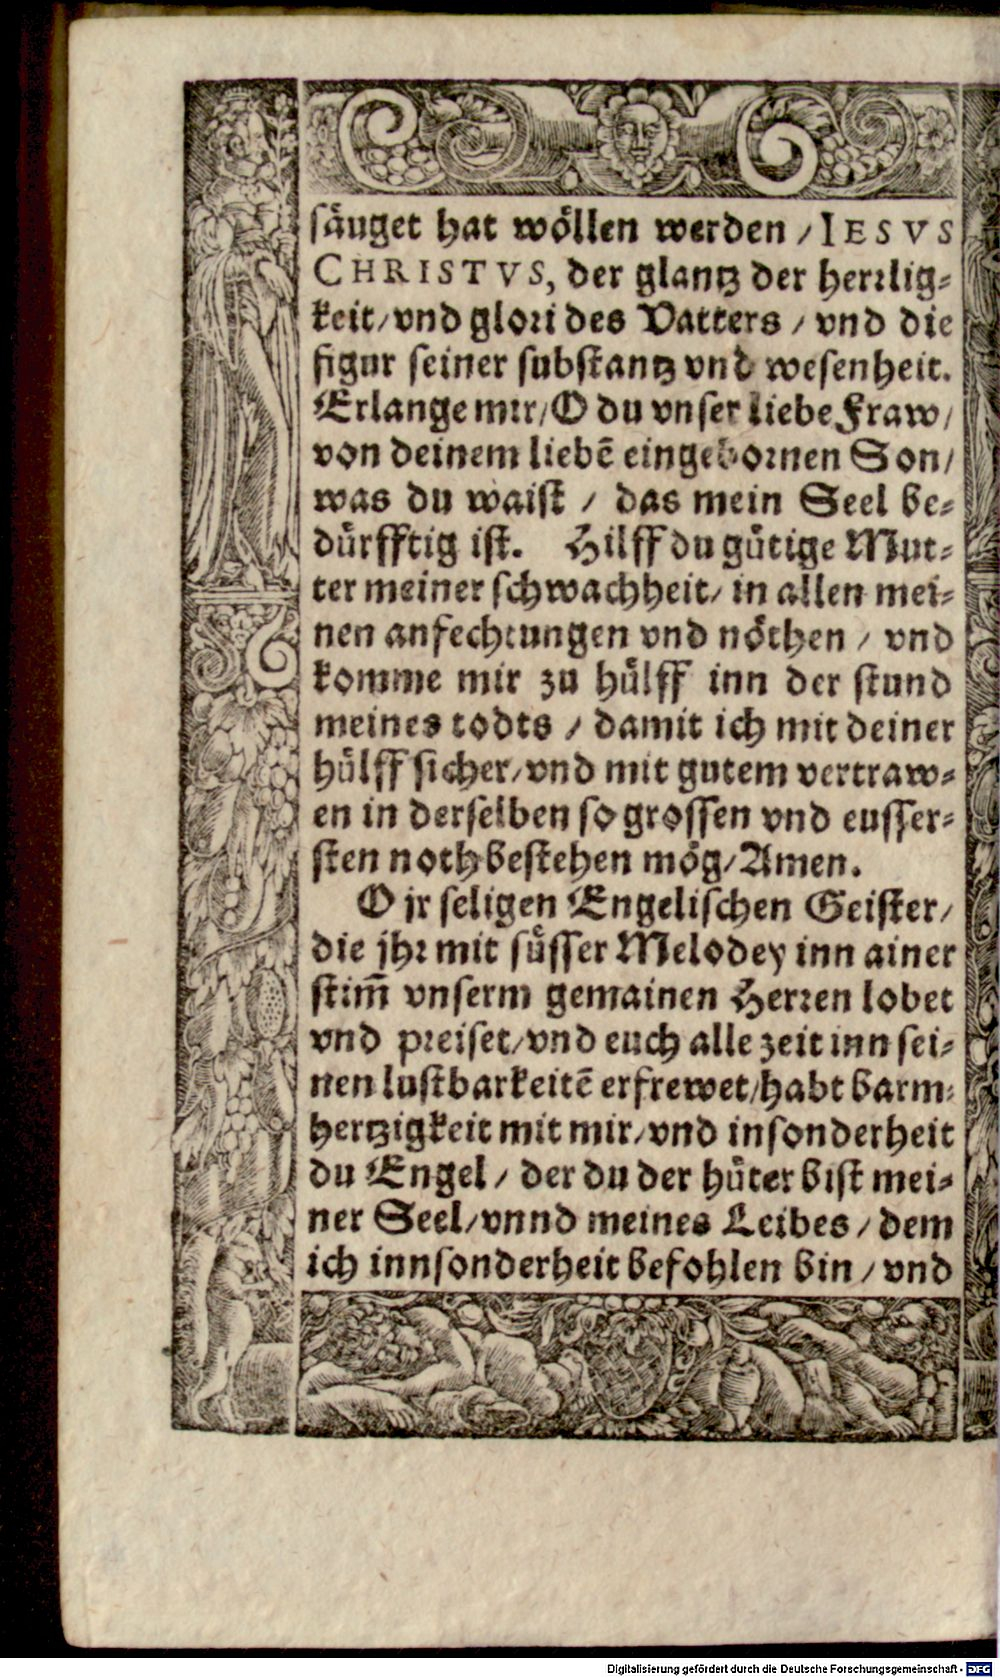 säuget hat wöllen werden / IESVS
CHRISTVS, der glantz der herrlig-
keit / vnd glori des Vatters / vnd die
figur seiner substantz vnd wesenheit.
Erlange mir / O du vnser liebe Fraw /
von deinem liebẽ eingebornen Son /
was du waist / das mein Seel be-
dürfftig ist. Hilff du gütige Mut-
ter meiner schwachheit / in allen mei-
nen anfechtungen vnd nöthen / vnd
komme mir zu hülff inn der stund
meines todts / damit ich mit deiner
hülff sicher / vnd mit gutem vertraw-
en in derselben so grossen vnd eusser-
sten noth bestehen mög / Amen.
O jr seligen Engelischen Geister /
die jhr mit süsser Melodey inn ainer
stim̃ vnserm gemainen Herren lobet
vnd preiset / vnd euch alle zeit inn sei-
nen lustbarkeitẽ erfrewet / habt barm-
hertzigkeit mit mir / vnd insonderheit
du Engel / der du der hüter bist mei-
ner Seel / vnnd meines Leibes / dem
ich innsonderheit befohlen bin / vnd
Digitalisierung gefördert durch die Deutsche Forschungsgemeinschaft - DFG